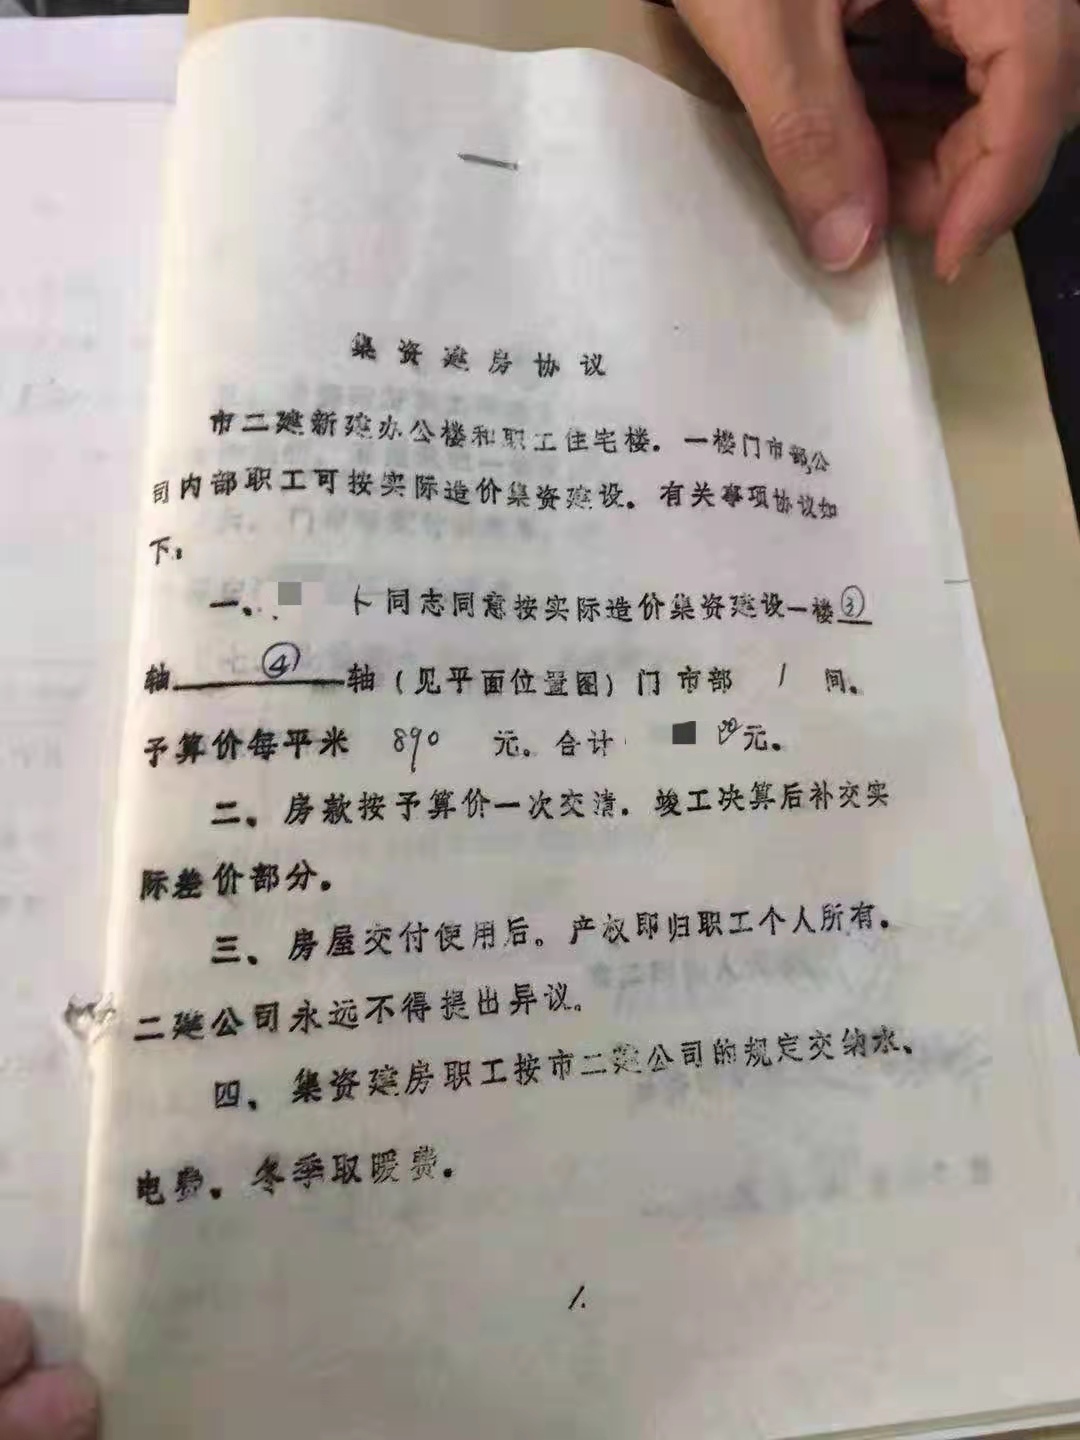 集资建房协议
市二建新建办公楼和职工住宅楼。一楼门市部,公
司内部职工可按实际造价集资建设。有关事项协议如
下:
一、 同志同意按实际造价集资建设一楼③
轴 ④ 轴(见平面位置图)门市部 1 间。
予算价每平米 890 元。合计 元。
二、房款按予算价一次交清.竣工决算后补交实
际差价部分。
三、房屋交付使用后。产权即归职工个人所有。
二建公司永远不得提出异议。
四、集资建房职工按市二建公司的规定交纳水、
电费。冬季取暖费。
1.